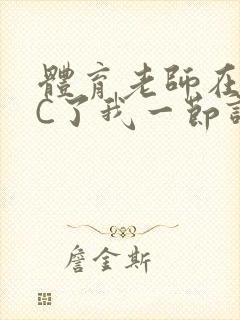 體育老師在
C了我一節
詹金斯